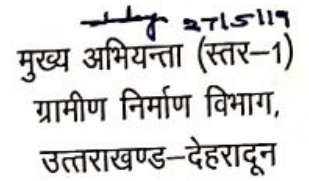 27/5/19
मुख्य अभियन्ता (स्तर–1)
ग्रामीण निर्माण विभाग,
उत्तराखण्ड–देहरादून